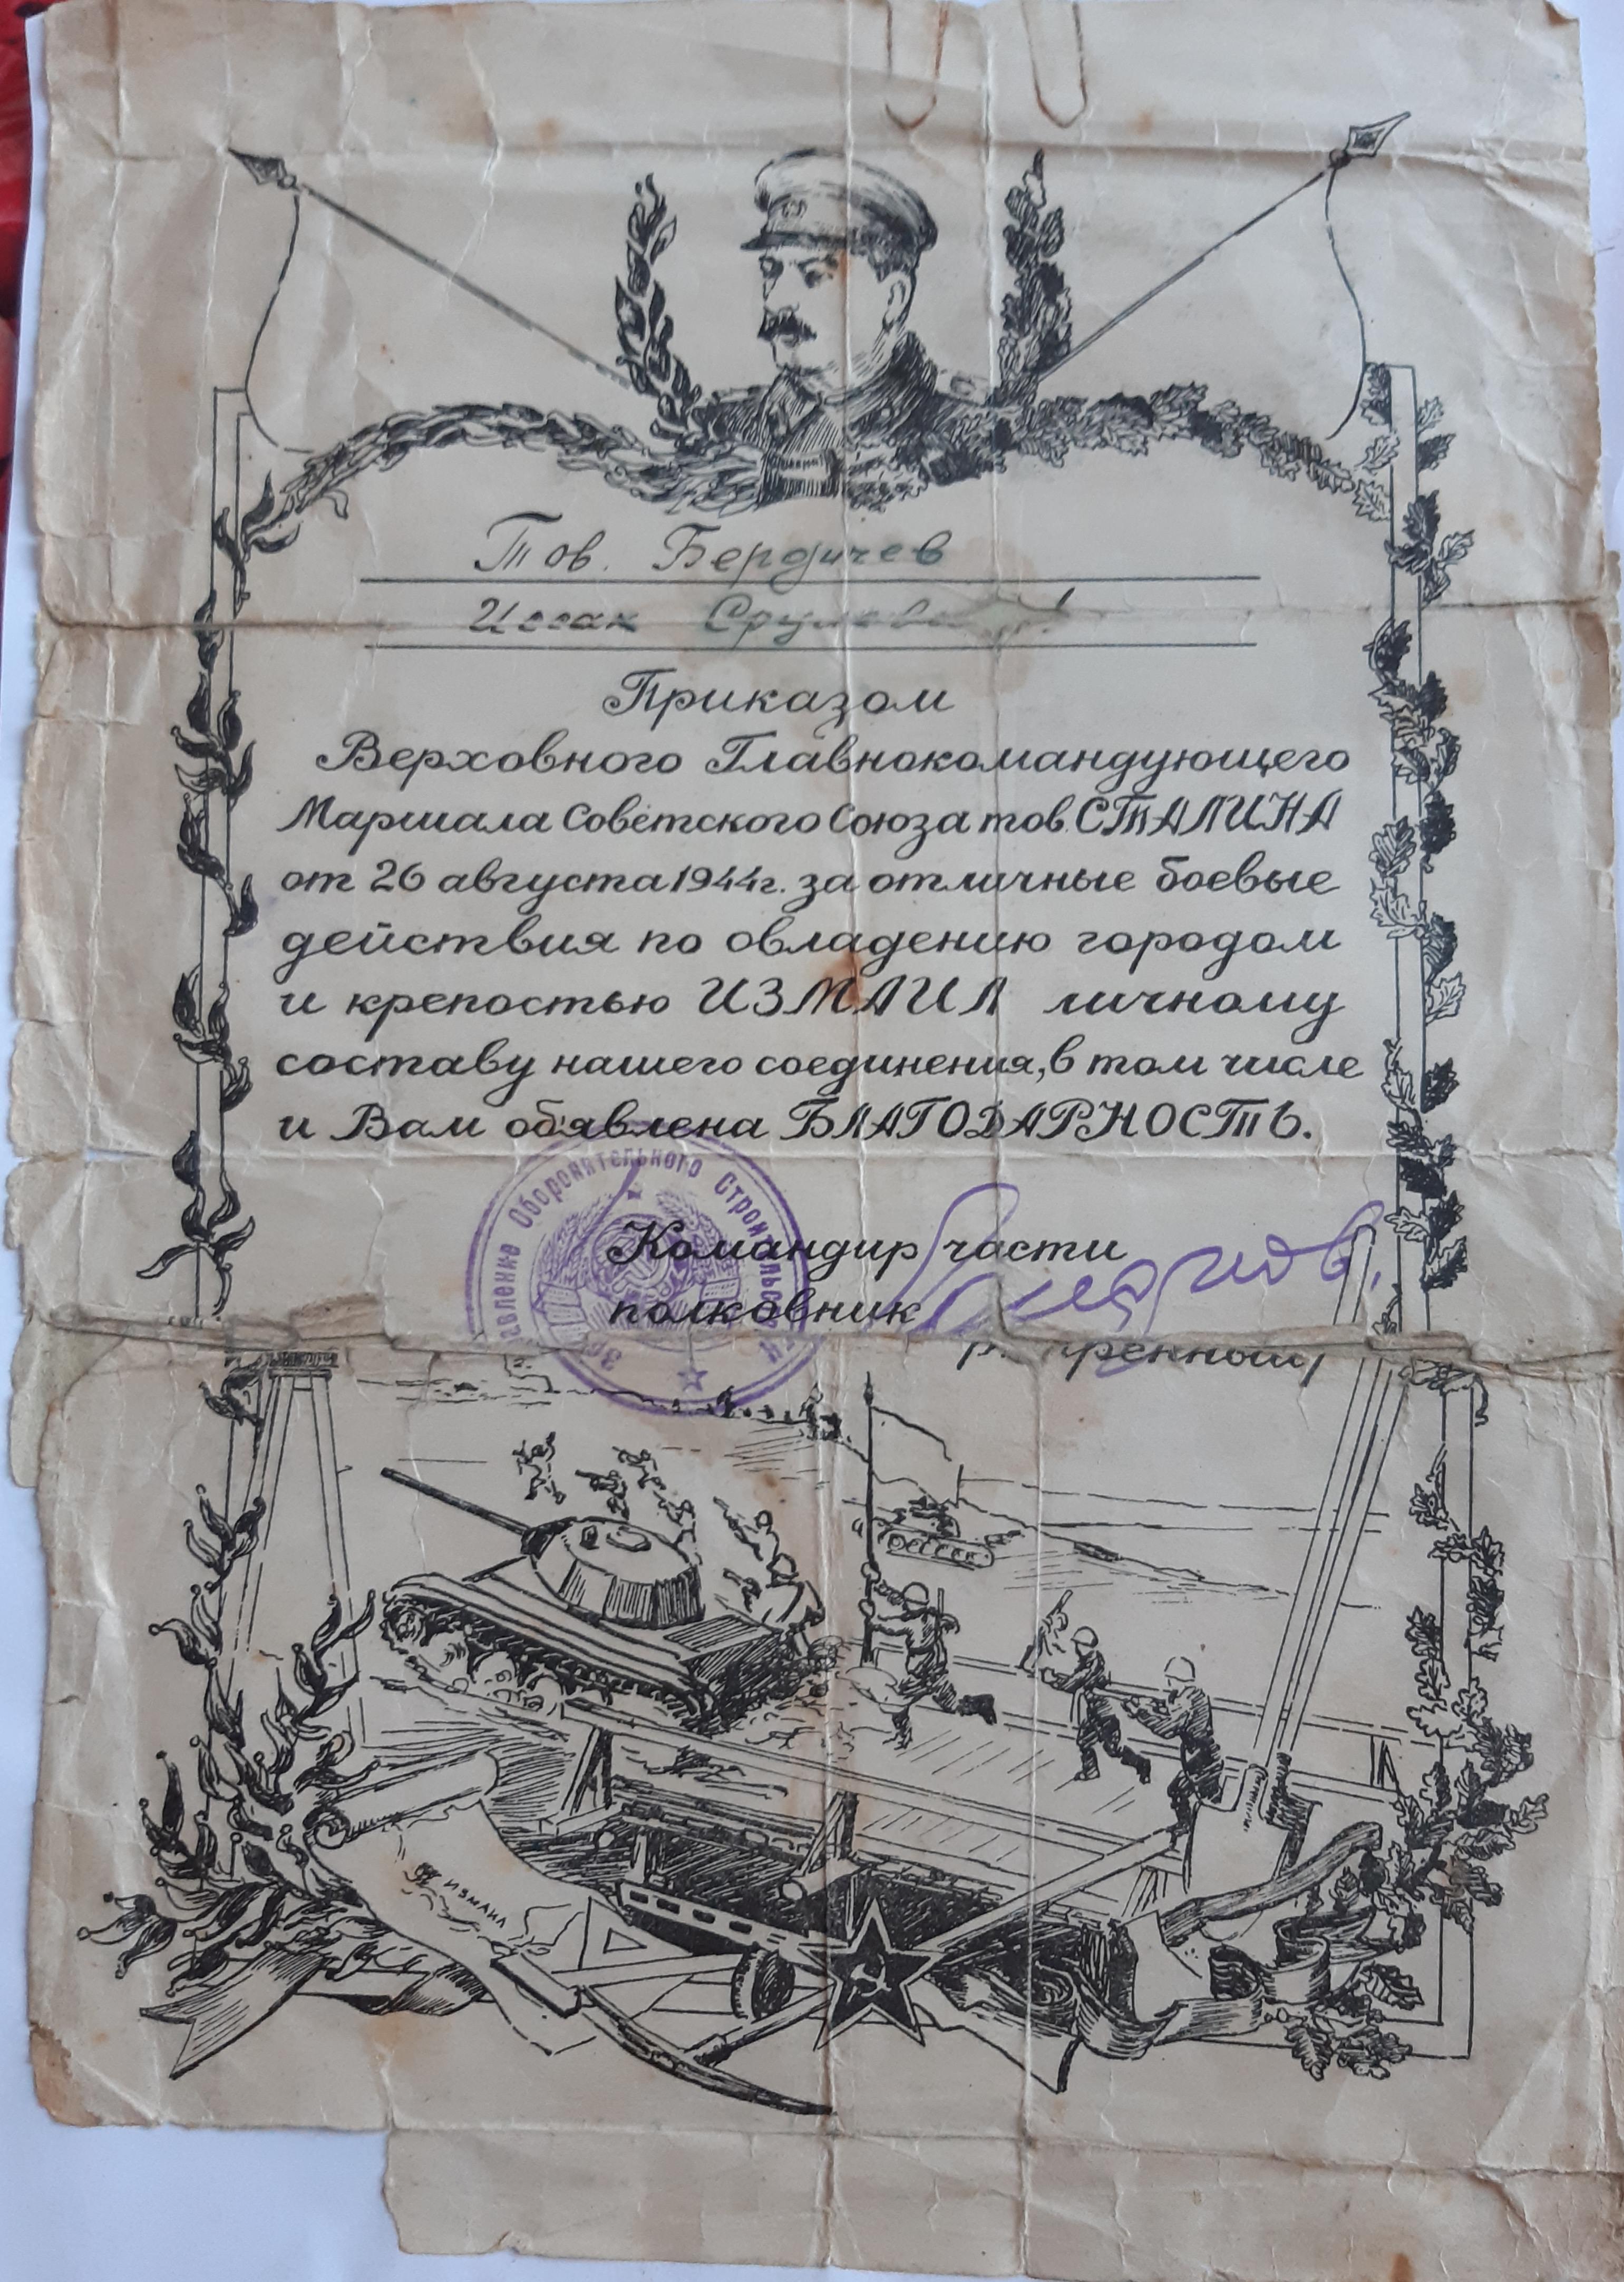 Тов. Бердичев
Исаак
Приказом
Верховного Главнокомандующего
Маршала Советского Союза тов. СТАЛИНА
от 26 августа 1944г. за отличные боевые
действия по овладению городом
и крепостью ИЗМАИЛ личному
составу нашего соединения, в том числе
и Вам обявлена БЛАГОДАРНОСТЬ.
Оборонительного Строительства
Командир части
полковник
ИЗМАИЛ